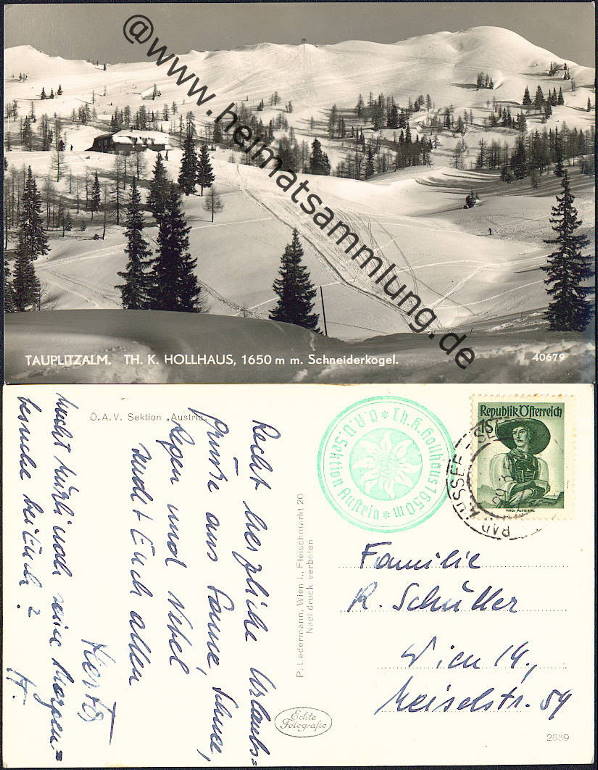 @www.heimatsammlung.de
TAUPLITZALM. TH. K. HOLLHAUS, 1650 m m. Schneiderkogel.
40679
Ö.A.V. Sektion „Austria"
Recht herzliche Urlaubs=
grüsse aus Sonne, Schnee,
Regen und Nebel
sendet Euch allen
Herta
macht Mutzli noch seine Morgen=
besuche bei Euch?
H.
P. Ledermann, Wien I., Fleischmarkt 20
Nachdruck verboten
Echte
Fotografie
Ö.A.V. Sektion Austria
Th. K. Hollhaus 1650 m
Republik Österreich
BAD AUSSEE
Familie
R. Schüller
Wien 14,
Meiselstr. 59
2539